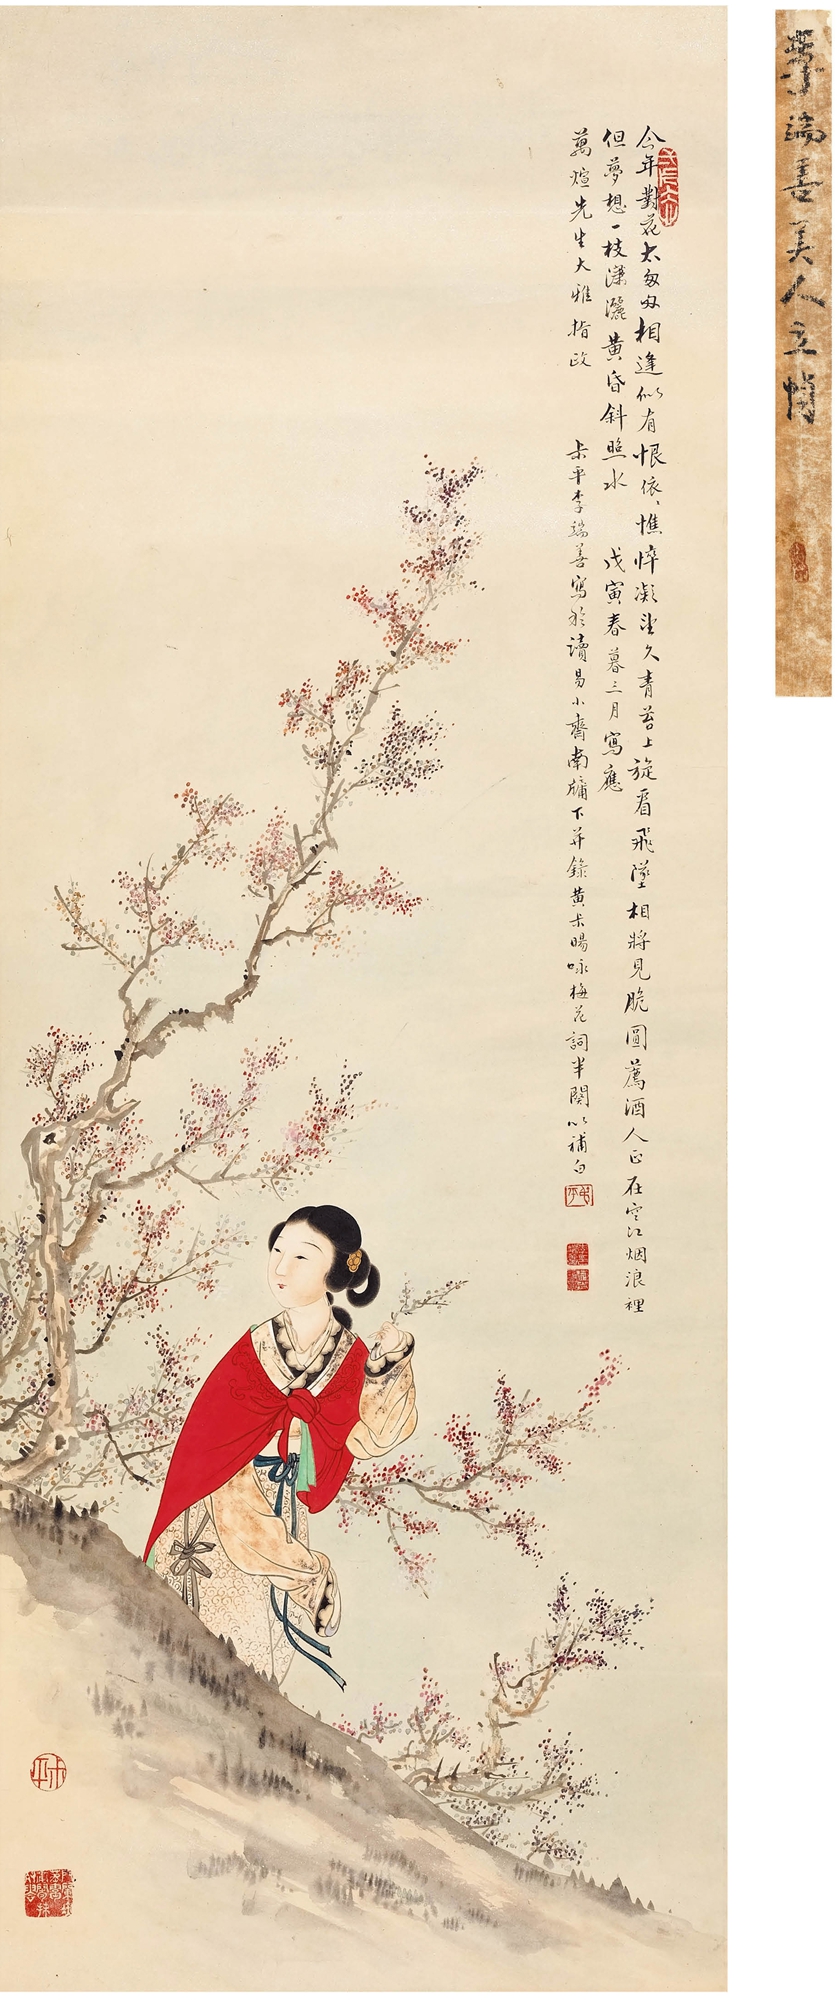 今年對花太匆匆相逢似有恨依依憔悴凝望久青苔上旋看飛墜相將見脆圓薦酒人正在空江烟浪裡
但夢想一枝瀟灑黄昏斜照水 戊寅春暮三月寫應
萬煊先生大雅指政 尗平李瑞善寫於讀易小齋南牖下并錄黄尗暘咏梅花詞半闋以補白
李瑞善美人立幀